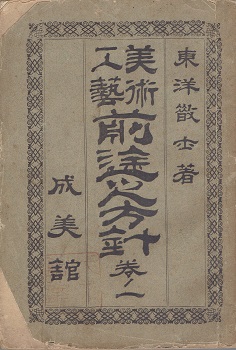 東洋散士著
美術
工藝
前途之方針
卷ノ一
成美館